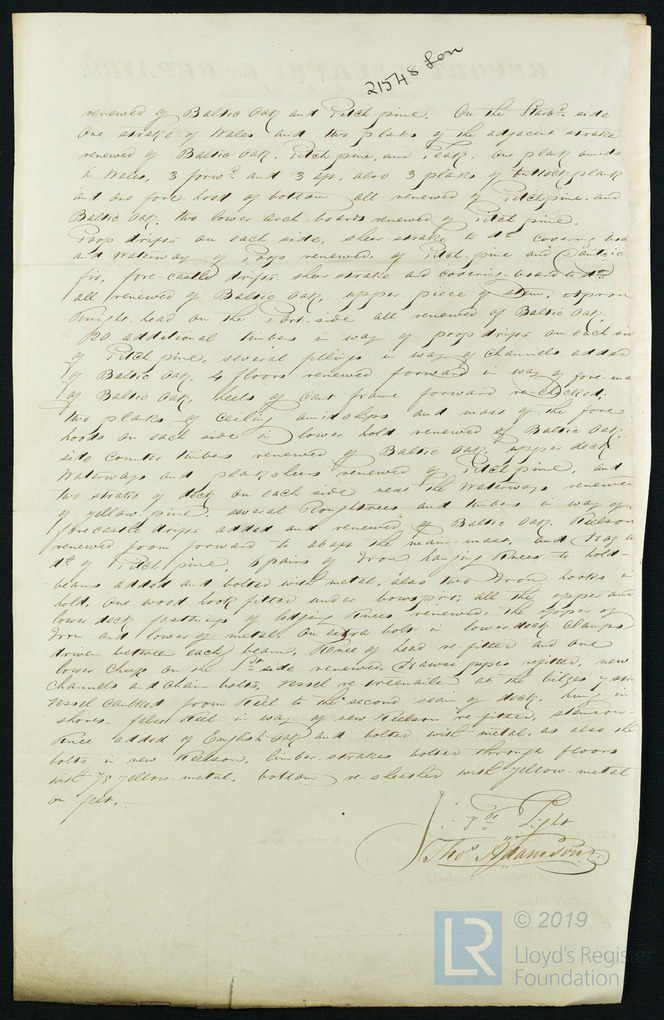 21548 Lon
renewed of Baltic Oak and Pitch pine. On the Starbd. side
One strake of Wales and two planks of the adjacent strake
renewed of Baltic Oak, Pitch pine, and Teak, one plank amids
in Wales, 3 forwd. and 3 aft, also 3 planks of buttock plank
and one fore hood of bottom all renewed of Pitch pine, and
Baltic Oak, two lower arch boards renewed of Pitch pine.
Poop drifts on each side, sheer strake to do. covering boa
and Waterway of Poop renewed, of Pitch pine and Dantzic
fir, fore-castle drifts, sheer strake and covering-board to do.
all renewed of Baltic Oak, upper piece of stem, Apron
Knight head on the Port side all renewed of Baltic Oak.
20 additional timbers in way of poop drifts on each si
of Pitch pine, several fillings in way of channels added
of Baltic Oak, 4 floors renewed forward in way of fore-ma
of Baltic Oak, heels of cant frame forward re-chocked.
two planks of ceiling amidships and most of the fore
hoods on each side in lower hold renewed of Baltic Oak.
side counter timbers renewed of Baltic Oak, upper deck
Waterways and planksheers renewed of Pitch pine, and
two strakes of deck on each side next the Waterways renewed
of yellow pine. several Roughtrees and timbers in way of
forecastle drifts added and renewed of Baltic Oak. Keelson
renewed from forward to abaft the main-mast, and
do. of Pitch pine, 6 pairs of Iron hanging knees to hold-
beams added and bolted with metal, also two Iron hooks in
hold, One wood hook fitted under bowsprit, all the upper and
lower deck fastnings of lodging Knees renewed, the upper of
Iron and lower of metal, On extra bolt in lower deck Clamps
driven between each beam, Knee of head re-fitted and one
lower cheek on the Pt side renewed, Hawse pipes refitted, new
Channels and chain bolts, vessel re-treenailed at the bilges
Vessel caulked from Keel to the second seam of deck. hung in
shores. false Keel in way of new Keelson re-fitted, sternson
Knee added of English Oak and bolted with metal, as also the
bolts in new Keelson, limber-strakes bolted through floors
with 7/8 yellow-metal, bottom re-sheathed with yellow-metal
on felt.
Light
Thos. Adamson
LR
© 2019
Lloyd's Register
Foundation